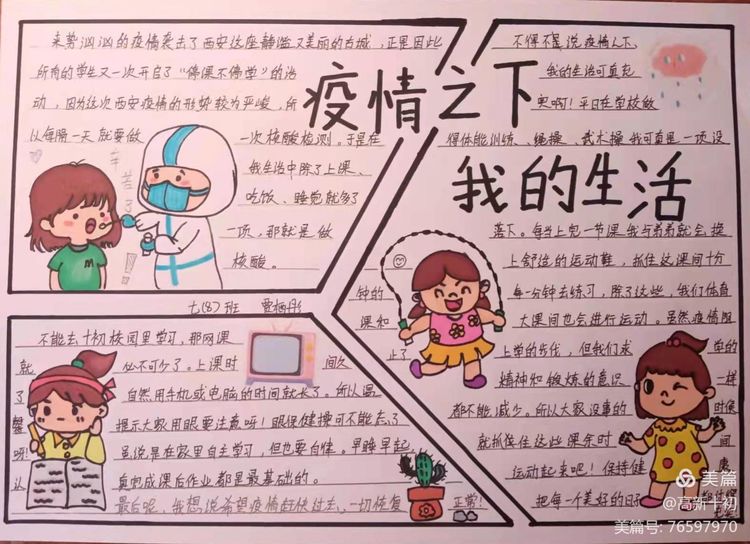 疫情之下
我的生活
来势汹汹的疫情袭击了西安这座静谧又美丽的古城，正是因此
所有的学生又一次开启了“停课不停学”的活
动，因为这次西安疫情的形势较为严峻，所
以每隔一天就要做一次核酸检测。于是在
我生活中除了上课、
吃饭、睡觉就多了
一项，那就是做
核酸。
辛苦了!
七(8)班
不得不说疫情之下，
我的生活可真充
实啊！平日在学校做
得体能训练、绳操、武术操我可真是一项没
落下。每当上包一节课我与弟弟就会换
上舒适的运动鞋，抓住这课间十分
钟的每一分钟去练习，除了这些，我们体育
课和大课间也会进行运动。虽然疫情阻
止了上学的步伐，但我们求学的
精神和锻炼的意识一样
都不能减少。所以大家没事的时候
就抓住住这些课余时间
运动起来吧！保持健康
把每一个美好的日子
不能去十初校园里学习，那网课
就必不可少了。上课时间久
了自然用手机或电脑的时间就长了。所以温
馨提示大家用眼要注意呀！眼保健操可不能忘了
呀！虽说是在家里自主学习，但也要自律。早睡早起
认真完成课后作业都是最基础的。
最后呢，我想说希望疫情赶快过去，一切恢复正常！
美篇
@高新十初
美篇号: 76597970